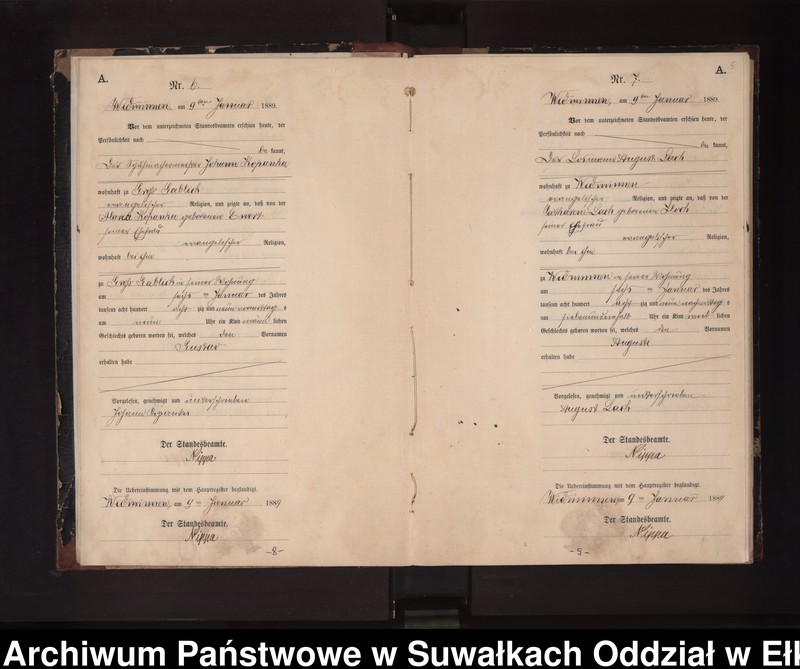 A.
Nr. 6.
Widminnen, am 9ten Januar 1889.
Vor dem unterzeichneten Standesbeamten erschien heute, der
Persönlichkeit nach
be kannt,
Der Schuhmachermeister Johann Kopanka
wohnhaft zu Groß Gablick
evangelischer Religion, und zeigte an, daß von der
Kopanka geborenen
seiner Ehefrau
evangelischer Religion,
wohnhaft bei ihm
zu Groß Gablick in seiner Wohnung
am sechs ten Januar des Jahres
tausend acht hundert acht zig und neun vormittag s
um neun Uhr ein Kind männ lichen
Geschlechts geboren worden sei, welches den Vornamen
Gustav
erhalten habe
Vorgelesen, genehmigt und unterschrieben
Johann
Der Standesbeamte.
Nippa
Die Uebereinstimmung mit dem Hauptregister beglaubigt.
Widminnen, am 9ten Januar 1889
Der Standesbeamte.
Nippa
-8-
A. 5
Nr. 7.
Widminnen, am 9ten Januar 1889.
Vor dem unterzeichneten Standesbeamten erschien heute, der
Persönlichkeit nach
be kannt,
Der Losmann August Lach
wohnhaft zu Widminnen
evangelischer Religion, und zeigte an, daß von der
Lach geborenen
seiner Ehefrau
evangelischer Religion,
wohnhaft bei ihm
zu Widminnen in seiner Wohnung
am sechs ten Januar des Jahres
tausend acht hundert acht zig und neun nachmittag s
um siebenundeinhalb Uhr ein Kind weib lichen
Geschlechts geboren worden sei, welches den Vornamen
Auguste
erhalten habe
Vorgelesen, genehmigt und unterschrieben
August Lach
Der Standesbeamte.
Nippa
Die Uebereinstimmung mit dem Hauptregister beglaubigt.
Widminnen, am 9ten Januar 1889
Der Standesbeamte.
Nippa
-9-
Archiwum Państwowe w Suwałkach Oddział w Eł